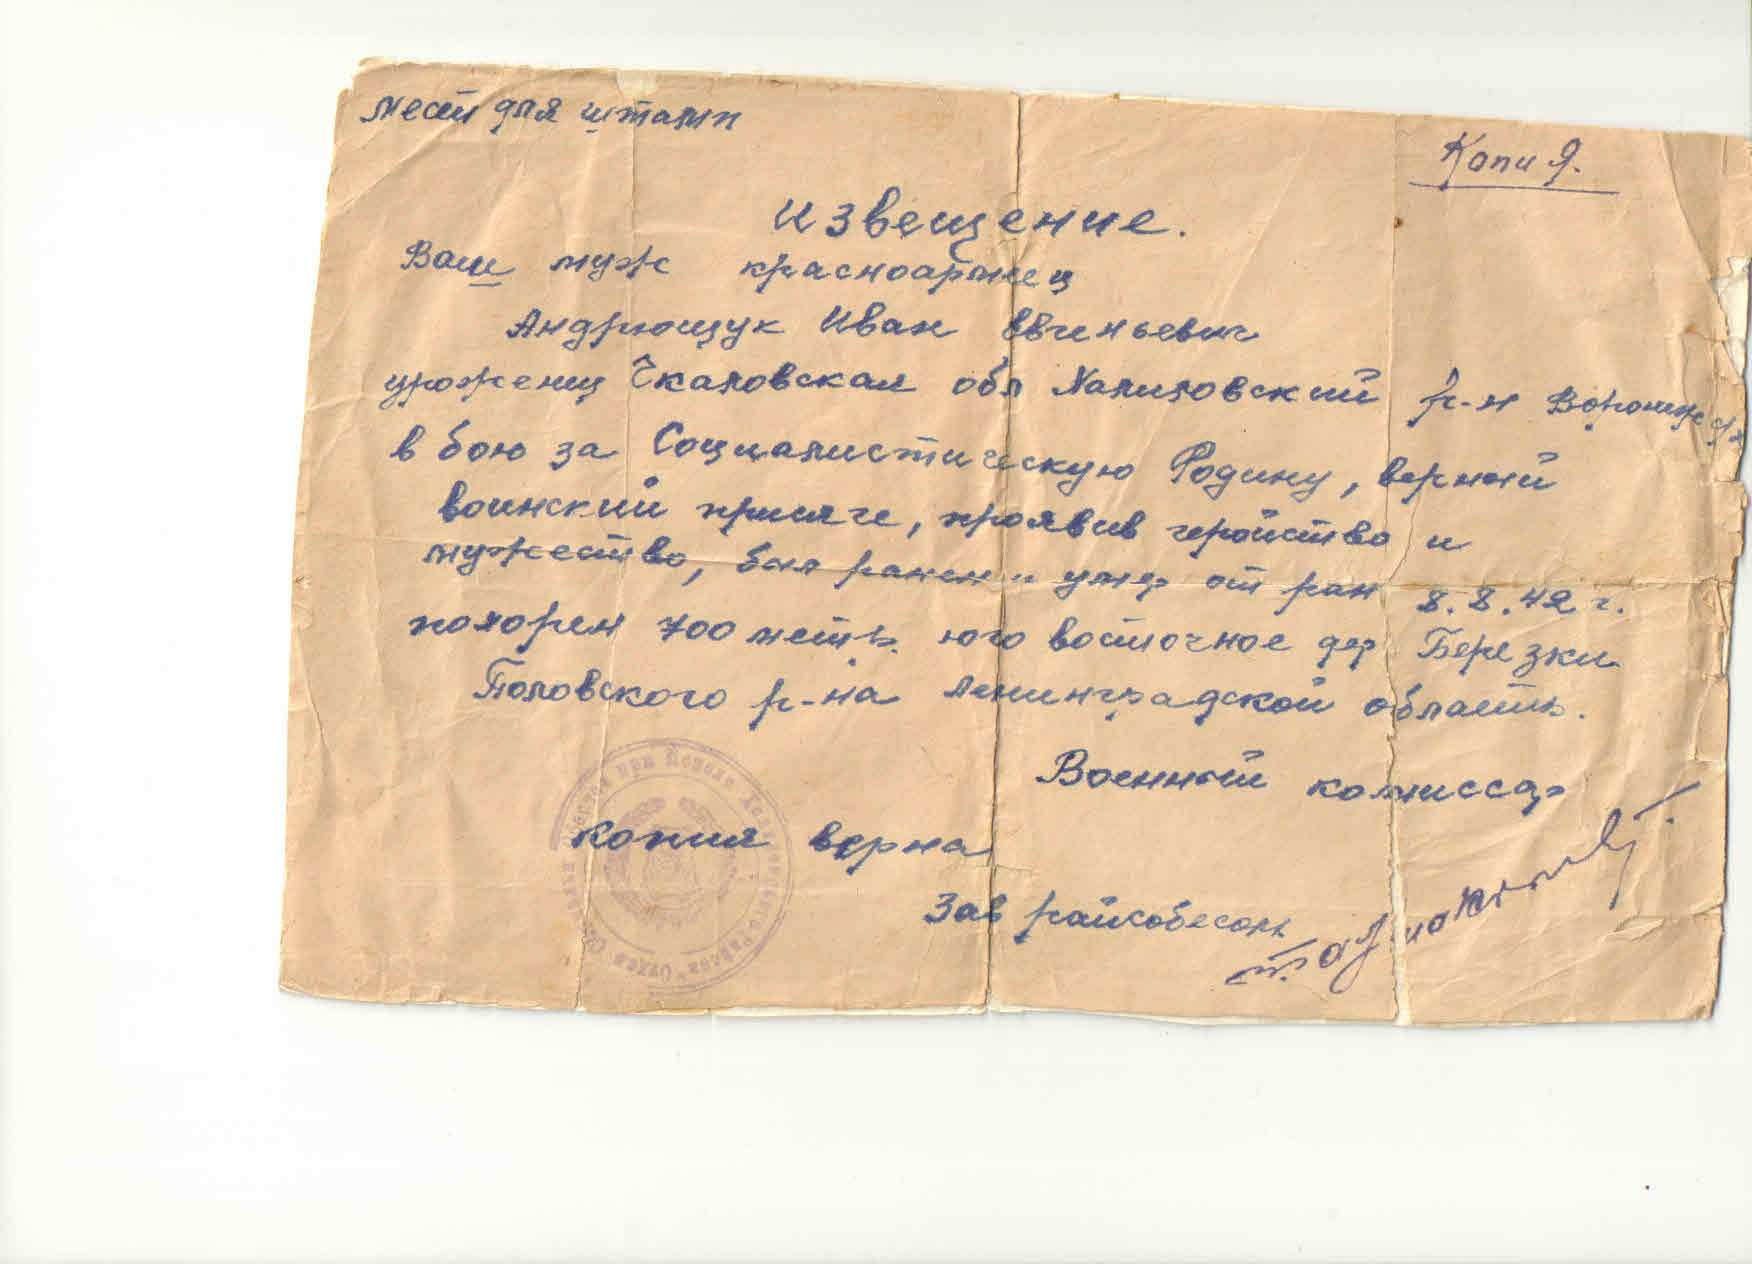 мест для штамп
Копия.
Извещение.
Ваш муж красноармеец
Андрющук Иван Евгиньевич
уроженец Чкаловская обл Халиловский р-н
в бою за Социалистическую Родину, верный
воинский присяге, проявив геройство и
мужество, был ранен и умер от ран 8.8.42 г.
похорен 700 метр. юго восточное дер Березки
Половского р-на Ленинградской область.
Военный комиссар
копия верна
Зав райсобесом